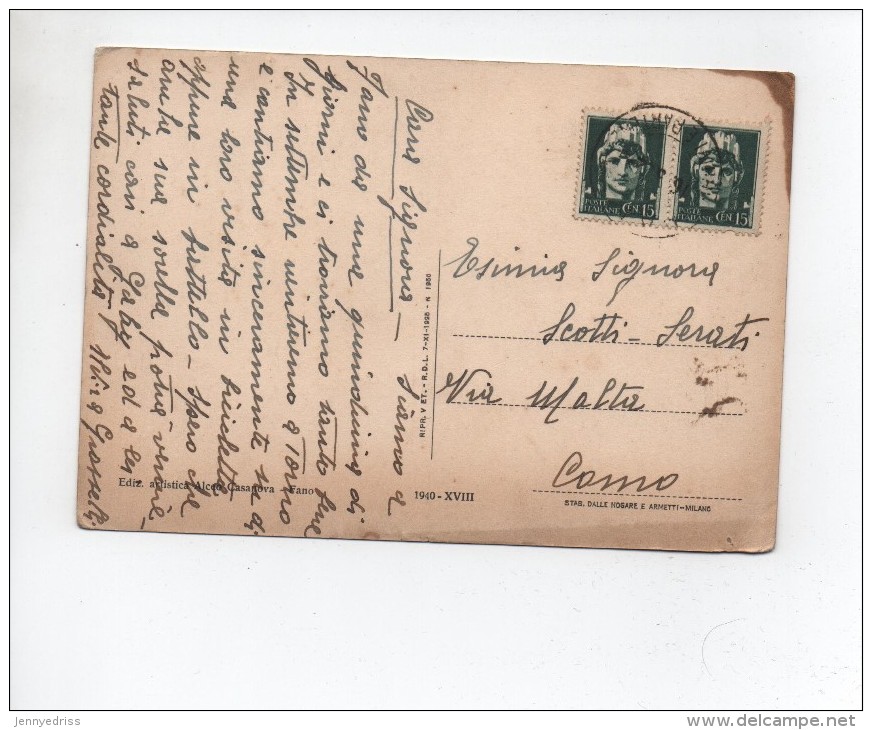 Cara Signora — Siamo a
Fano da una quindicina di
giorni e ci troviamo tanto bene
In settembre verremo a Torno
e contiamo sinceramente su di
una loro visita in bicicletta
oppure in battello — Spero che
anche sua sorella potrà venire
saluti cari a Gaby ed a lei
tante cordialità
POSTE
ITALIANE
CEN. 15
POSTE
ITALIANE
CEN. 15
Esimia Signora
Scotti - Serati
Via Malta
Como
RIPR. VIET. - R.D.L. 7-XI-1925 - N 1950
Ediz. artistica Alceo Casanova - Fano
1940 - XVIII
STAB. DALLE NOGARE E ARMETTI - MILANO
jennyedriss
www.delcampe.net